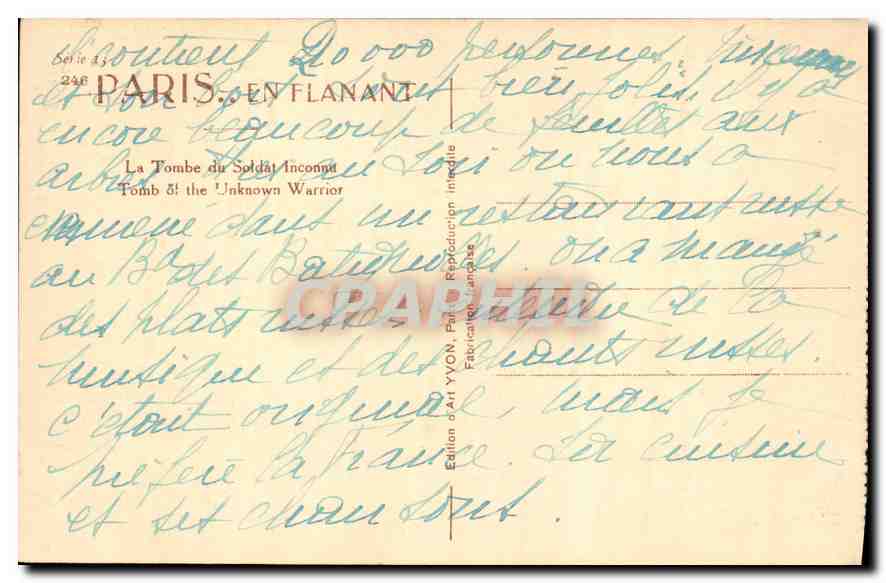 il contient 20 000 personnes,
Série 13
246 PARIS.. EN FLANANT
et son bien jolis, il y a
encore beaucoup de feuilles aux
La Tombe du Soldat Inconnu
Tomb of the Unknown Warrior
arbres. Hier au soir on nous a
emmené dans un restaurant russe
au Bd des Batignolles. on a mangé
des plats russes, de la
musique et des chants russes.
c'était original, mais je
préfère la france. Sa cuisine
et ses chansons.
Edition d'Art YVON, Paris Reproduction interdite
Fabrication française
CPAPHIL